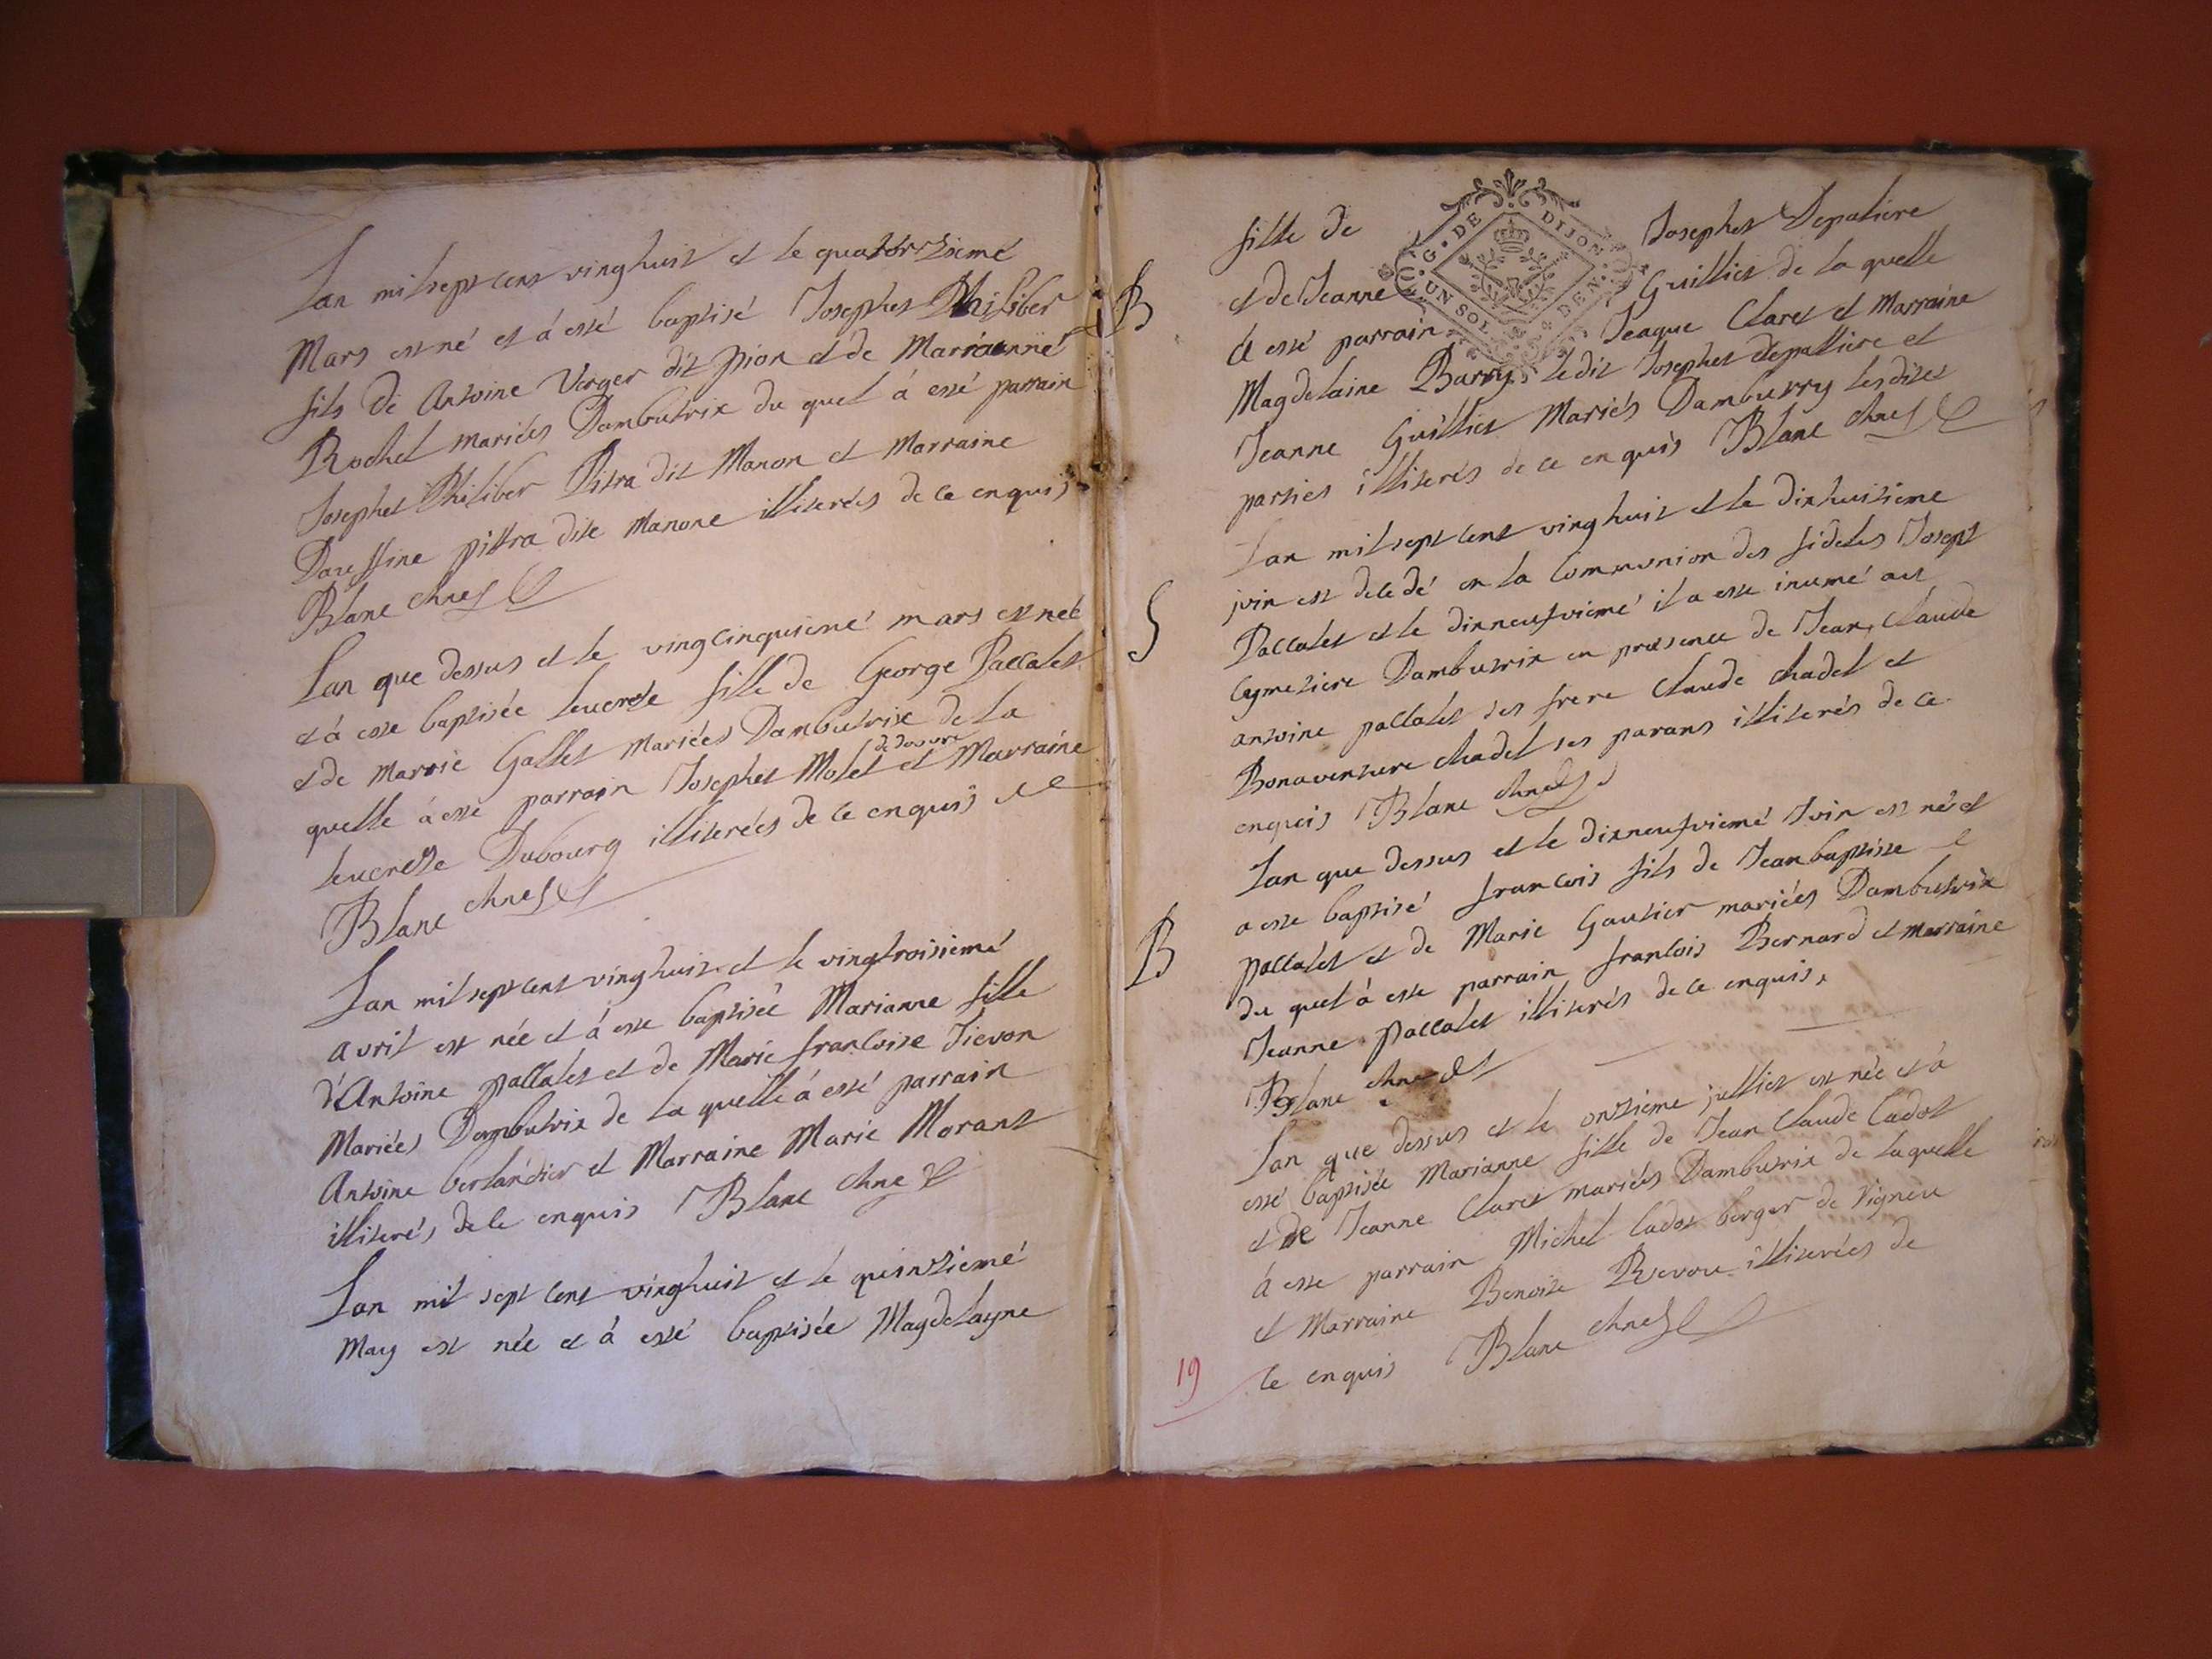 Lan mil sept cent vinghuit et le quatorrzieme
Mars est né et á esté baptisé Josephet Philiber
fils de Antoine Verger dit pion et de Marrianné
Rochet mariées Dambutrix du quel á esté parrain
Josephet Philiber Pitra dit Manon et Marraine
pittra dite Manone illiterées de ce enquis
Blanc
Lan que dessus et le vingcinquieme mars est neé
et á este baptisée leucrese fille de George Paccalet
et de Marrie Gallet mariées Dambutrix de la
quelle á esté parrain Josephet Molet et Marraine
leucresse Dubourg illiterées de ce enquis
Blanc
Lan mil sept cent vinghuit et le vingtroisieme
avril est née et á este baptisée Marianne fille
d'Antoine paccalet et de Marie francoise Tievon
Mariées Dambutrix de la quelle á esté parrain
Antoine berlandier et Marraine Marie Morant
illiterés de ce enquis Blanc
Lan mil sept cent vinghuit et le quinzieme
May est née et á esté baptisée Magdelayne
G. DE DIJON
UN SOL DEN.
fille de Josephet Depaliere
B
et de Jeanne Guilliet de la quelle
á esté parrain Jeaque Claret et Marraine
Magdelaine Barry, ledit Josephet depalliere et
Jeanne Guilliet Mariés Damburry lesdites
parties illiterés de ce enquis Blanc
Lan mil sept cent vinghuit et le dixhuitieme
juin est decedé en la Communion des fideles Josept
S
Paccalet et le dixneufvieme il a esté inumé au
Cymetiere Dambutrix en presence de Jean, Claude
antoine paccalet ses frere Claude chadel et
Bonaventure chadel ses parans illiterés de ce
enquis Blanc
Lan que dessus et le dixneufvieme Juin est né et
a este baptisé francois fils de Jeanbaptiste
B
paccalet et de Marie Gautier mariées Dambutrix
du quel á este parrain francois Bernard et marraine
Jeanne paccalet illiterés de ce enquis,
Blanc
Lan que dessus et le onzieme juillet est née et á
esté baptisée Marianne fille de Jean Claude Cadot
et de Jeanne Claret mariées Dambutrix de laquelle
á este parrain Michel Cadot berger de Vigneu
et Marraine Benoite Revou illiterées de
ce enquis Blanc
19